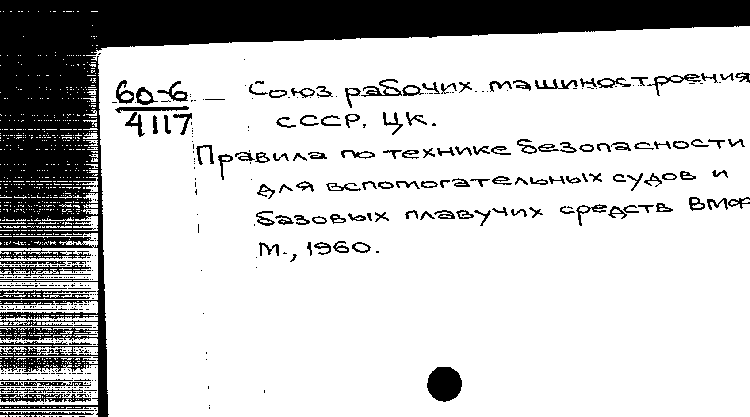 60-6
4117
Союз рабочих машиностроения
СССР. ЦК.
Правила по технике безопасности
для вспомогательных судов и
базовых плавучих средств ВМФ
М., 1960.